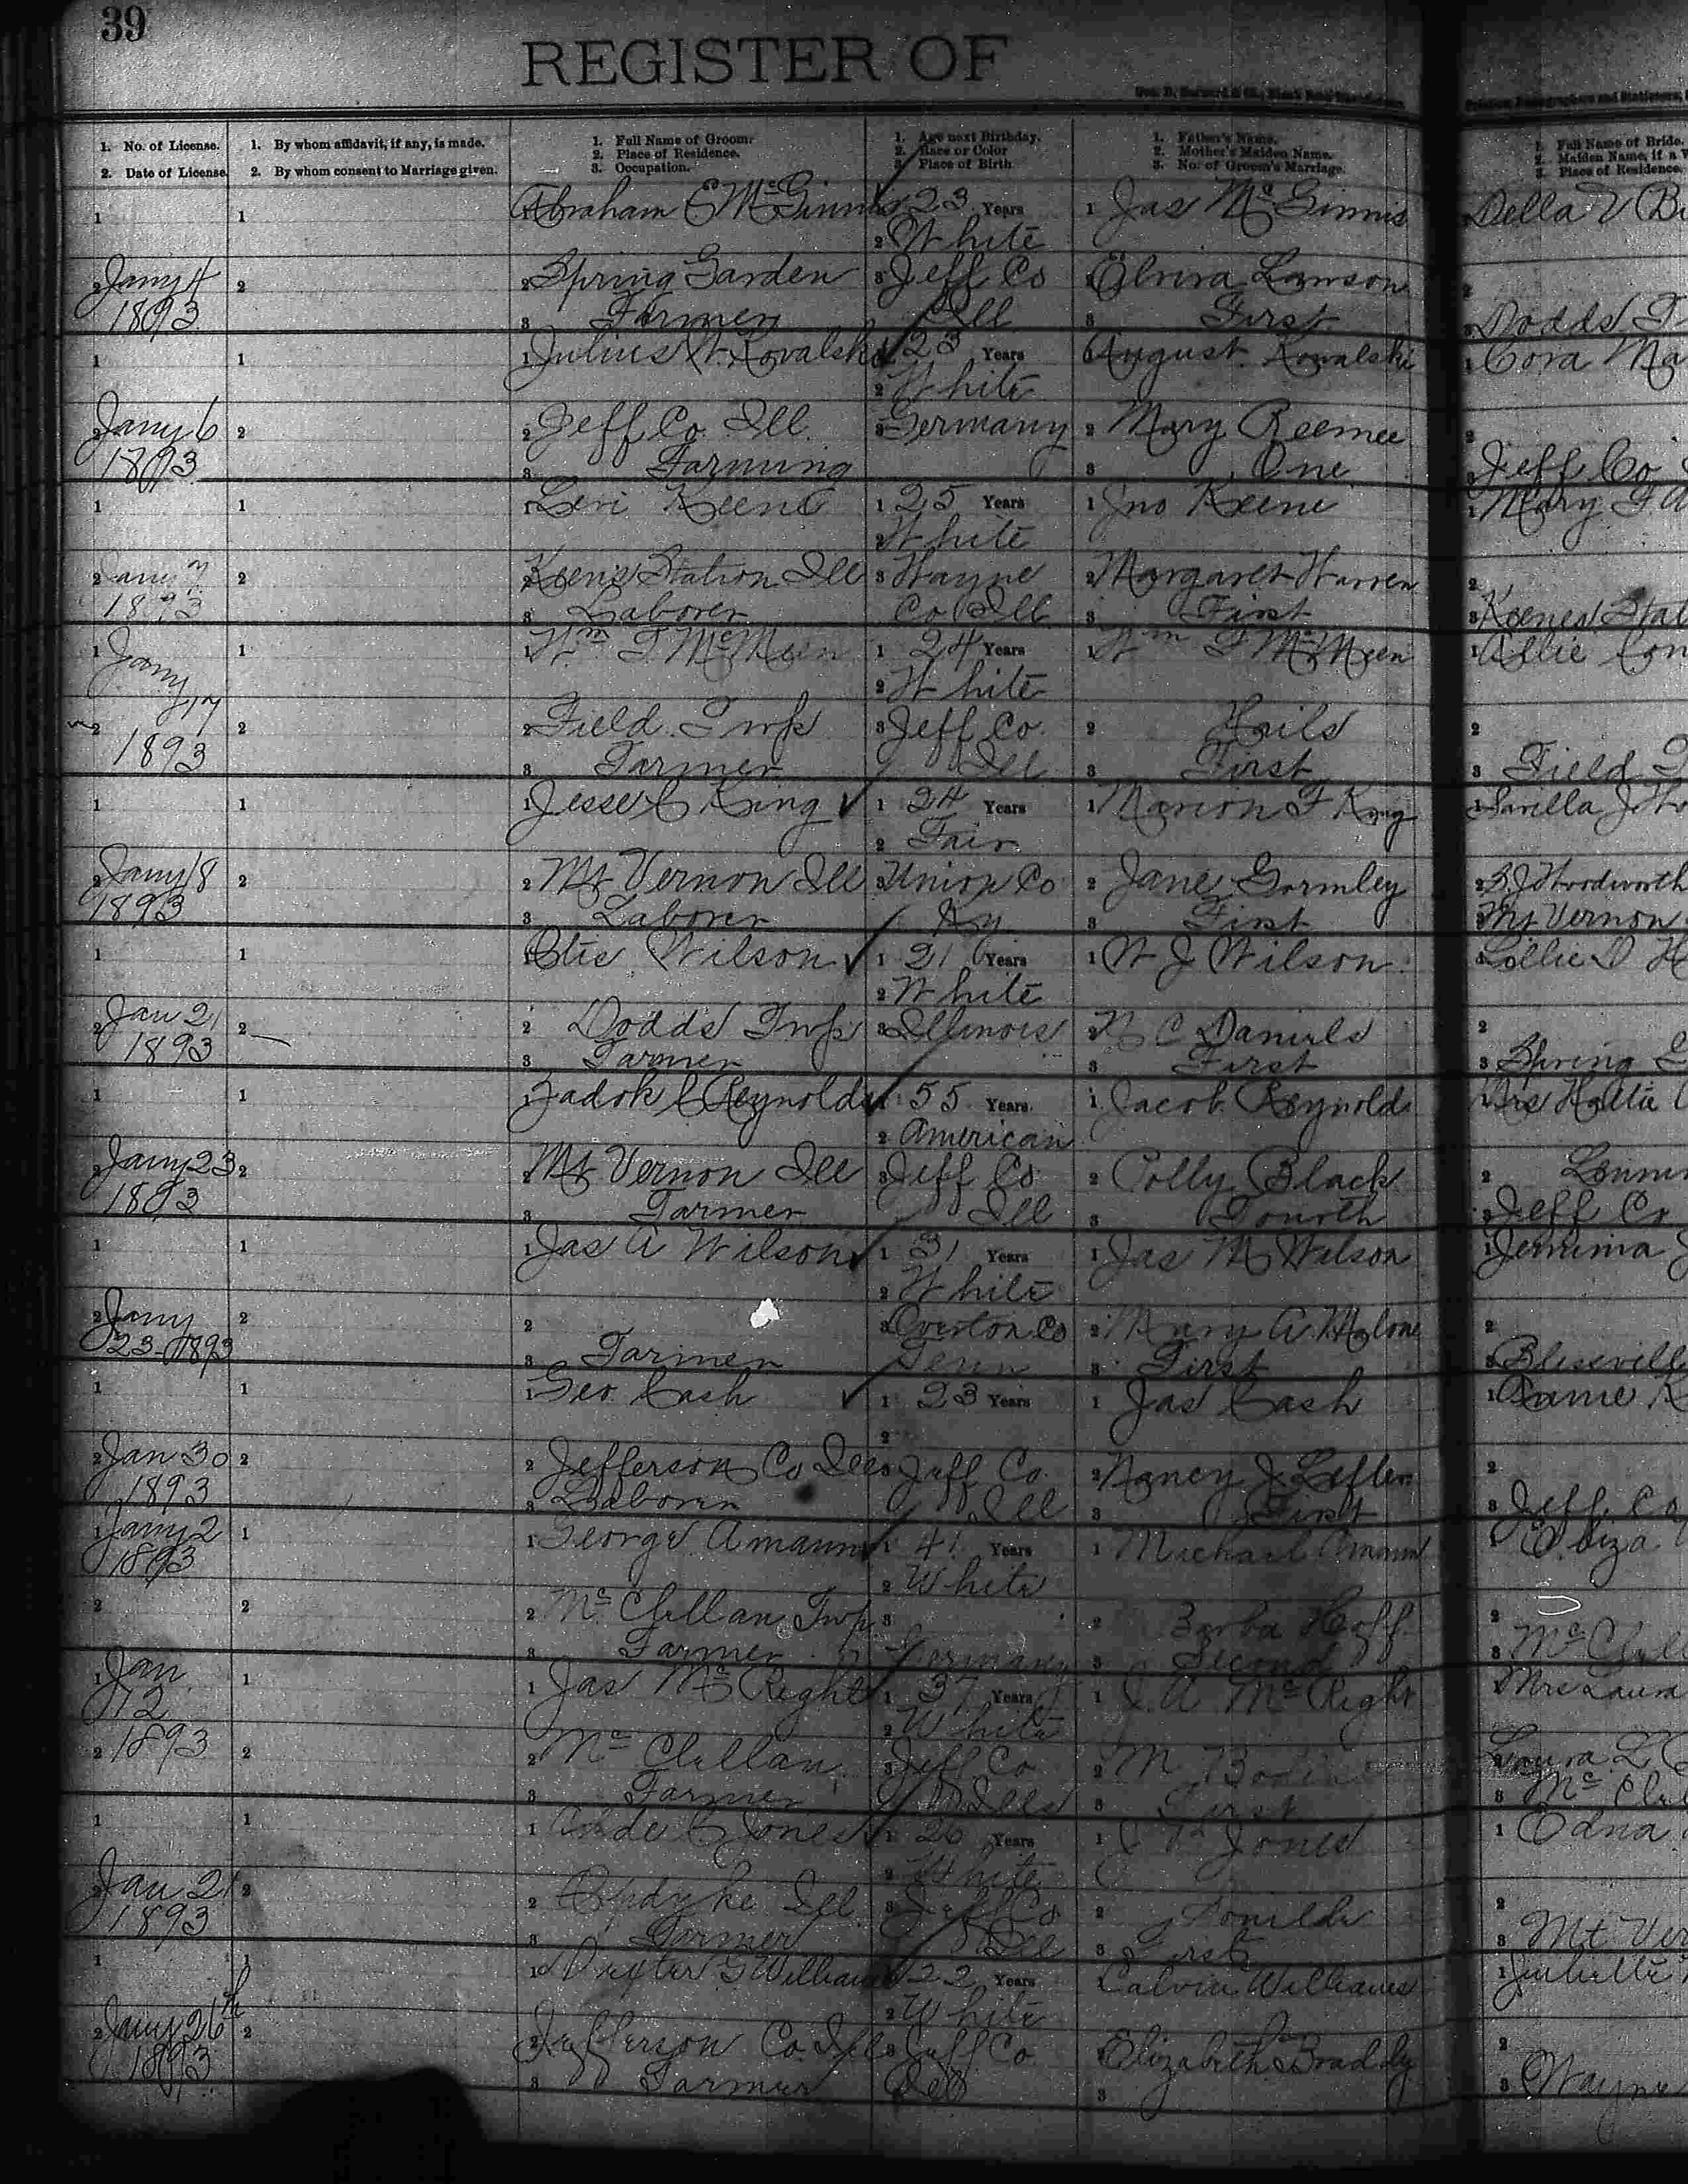 39
REGISTER OF
1. No. of License.
2. Date of License.
1. By whom affidavit, if any, is made.
2. By whom consent to Marriage given.
1. Full Name of Groom.
2. Place of Residence.
3. Occupation.
1. Age next Birthday.
2. Race or Color
3. Place of Birth
1. Father's Name.
2. Mother's Maiden Name.
3. No. of Groom's Marriage.
1. Full Name of Bride.
2. Maiden Name, if a
3. Place of Residence.
1 1 Abraham E McGinnis 1 23 Years 1 Jas McGinnis Della V
2 White
2 Jany 4 2 2 Spring Garden 3 Jeff Co 2 Elvira Lawson 2
1893 3 Farmer Ill 3 First 3 Dodds
1 1 1 Julius W Kovalski 1 23 Years August Kowalski 1 Cora Ma
2 White
2 Jany 6 2 2 Jeff Co Ill 3 Germany 2 Mary Reemee 2
1893 3 Farming 3 One 3 Jeff Co
1 1 1 Levi Keene 1 25 Years 1 Jno Keene 1 Mary F
2 White
2 Jany 7 2 2 Keens Station Ill 3 Wayne 2 Margaret Warren 2
1893 3 Laborer Co Ill 3 First 3 Keenes Stat
1 Jany 1 1 Wm F McMeen 1 24 Years 1 Wm F McMeen 1 Allie
17 2 White
2 2 2 Field Twp 3 Jeff Co 2 Hails 2
1893 3 Farmer Ill 3 First 3 Field
1 1 1 Jesse C King 1 24 Years 1 Marion F King 1 Sarilla J
2 Fair
2 Jany 18 2 2 Mt Vernon Ill 3 Union Co 2 Jane Gormley 2 Woodworth
1893 3 Laborer Ky 3 First 3 Mt Vernon
1 1 1 Otis Wilson 1 21 Years 1 W J Wilson 1 Lillie D
2 White
2 Jan 21 2 2 Dodds Twp 3 Illinois 2 N C Daniels 2
1893 3 Farmer 3 First 3 Spring
1 1 1 Zadok C Reynolds 1 55 Years 1 Jacob Reynolds Mrs Hattie
2 American
2 Jany 23 2 2 Mt Vernon Ill 3 Jeff Co 2 Polly Black 2
1893 3 Farmer Ill 3 Fourth 3 Jeff Co
1 1 1 Jas A Wilson 1 31 Years 1 Jas M Wilson 1 Jemima J
2 White
2 Jany 2 2 3 Overton Co 2 Mary A Malone 2
23-1893 3 Farmer Tenn 3 First 3
1 1 1 Geo Cash 1 23 Years 1 Jas Cash 1
2
2 Jan 30 2 2 Jefferson Co Ill 3 Jeff Co 2 Nancy J Lefler 2
1893 3 Laborer Ill 3 First 3 Jeff Co
1 Jany 2 1 1 George Amann 1 41 Years 1 Michael Amann 1 Eliza
1893 2 White
2 2 2 McClellan Twp 3 2 Barba Hoff 2
3 Farmer Germany 3 Second 3 McClell
1 Jan 1 1 Jas McRight 1 37 Years 1 J A McRight 1 Mrs Laura
12 2 White
2 1893 2 2 McClellan 3 Jeff Co 2 M Laura L
3 Farmer Ills 3 First 3 McClel
1 1 1 C Jones 1 26 Years 1 Jones 1 Edna
2 White
2 Jan 21 2 2 Opdyke Ill 3 Jeff Co 2 2
1893 3 Farmer Ill 3 First 3 Mt Ver
1 1 1 Dexter G Williams 1 22 Years Calvin Williams 1
2 White
2 Jany 26th 2 2 Jefferson Co Ill 3 Jeff Co Elizabeth Braddy 2
1893 3 Farmer Ill 3 3 Wayne